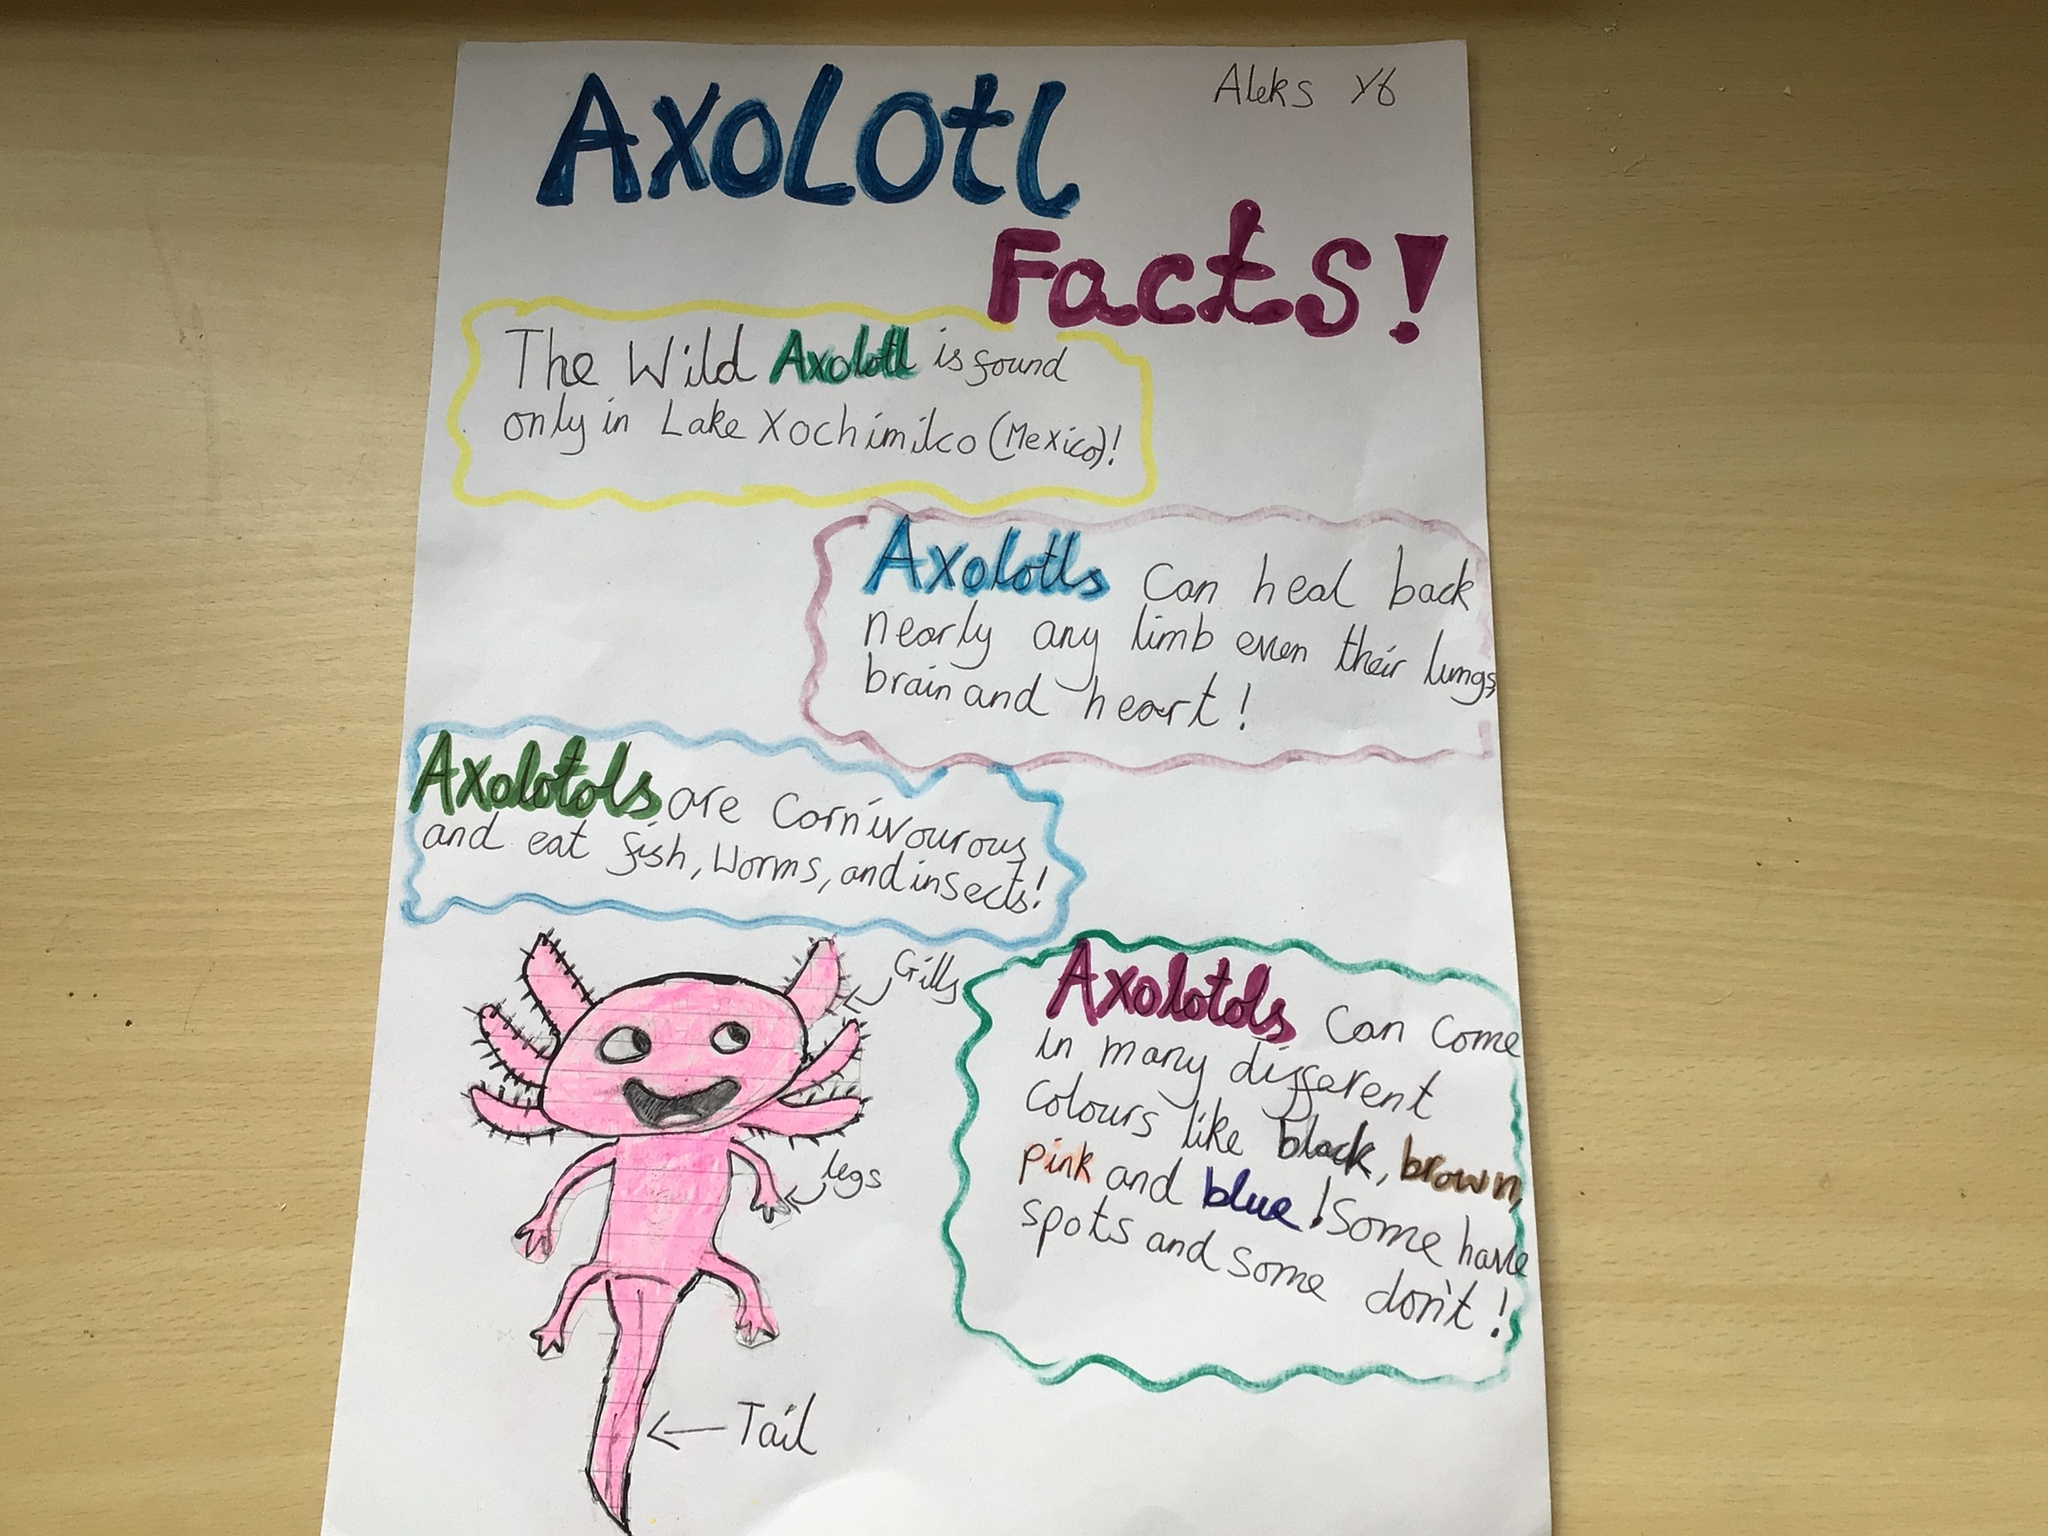 Aleks Y6
AxoLOtl
Facts!
The Wild Axolotl is found
only in Lake Xochimilco (Mexico)!
Axolotls can heal back
nearly any limb even their lungs,
brain and heart!
Axolotols are Carnivourous
and eat fish, worms, and insects!
Gills
legs
Tail
Axolotols can come
in many different
colours like black, brown,
pink and blue! Some have
spots and some don't!